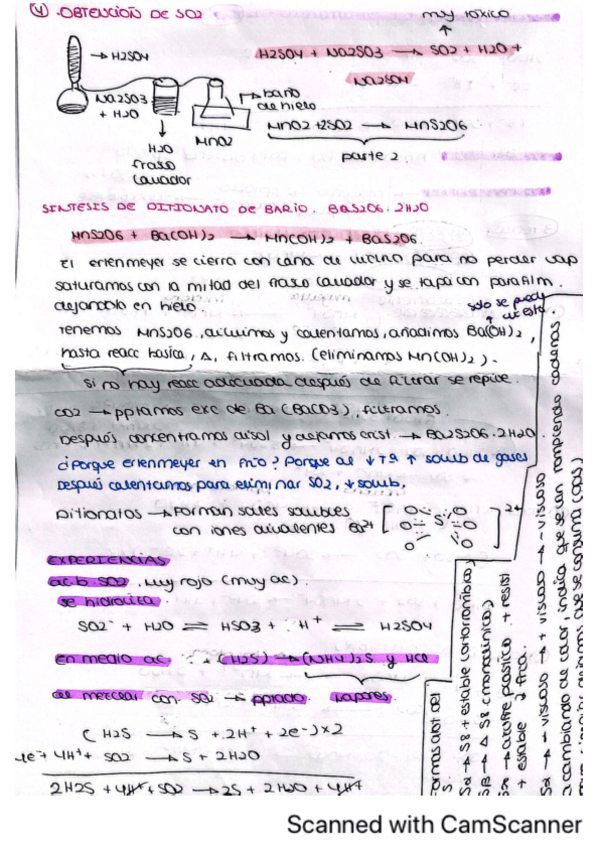 (4) OBTENCIÓN DE SO2
muy tóxico
→ H2SO4
H2SO4 + Na2SO3 → SO2 + H2O +
Na2SO4
Na2SO3
+ H2O
→ baño
de hielo
H2O
frasco
lavador
MnO2
MnO2 + 2SO2 → MnS2O6
parte 2
SINTESIS DE DITIONATO DE BARIO. BaS2O6·2H2O
MnS2O6 + Ba(OH)2 → Mn(OH)2 + BaS2O6.
El erlenmeyer se cierra con lana de vidrio para no perder vap
saturamos con la mitad del frasco lavador y se tapa con parafilm.
dejandolo en hielo.
solo se puede
Tenemos MnS2O6, diluimos y calentamos, añadimos Ba(OH)2,
hasta reacc basica, Δ, filtramos. (eliminamos Mn(OH)2).
si no hay reacc adecuada después de filtrar se repite.
CO2 → pptamos exc de Ba (BaCO3), filtramos.
Después concentramos disol y dejamos crist. → BaS2O6·2H2O.
¿Porque erlenmeyer en frio? Porque al ↓ Tª ↑ solub de gases
Después calentamos para eliminar SO2, ↓ solub.
Ditionatos → Forman sales solubles
con iones divalentes Ba2+
EXPERIENCIAS
ac.b. SO2. Muy rojo (muy ac).
se hidroliza.
SO2 + H2O ⇌ HSO3 + H+ ⇌ H2SO4
en medio ac. + (H2S) → (NH4)2S y HCl
al mezclar con SO2 → pptado. Vapores.
(H2S → S + 2H+ + 2e-)x2
4e- + 4H+ + SO2 → S + 2H2O
2H2S + 4H+ + SO2 → 2S + 2H2O + 4H+
Formas alot del
S.
Sα → S8 + estable (ortorrómbico)
Sβ → Δ S8 (monoclínico)
azufre plastico + resist
+ estable
Sλ → - viscoso → + viscoso → - viscoso
a cambiando de color, indica que se van rompiendo cadenas.
Scanned with CamScanner